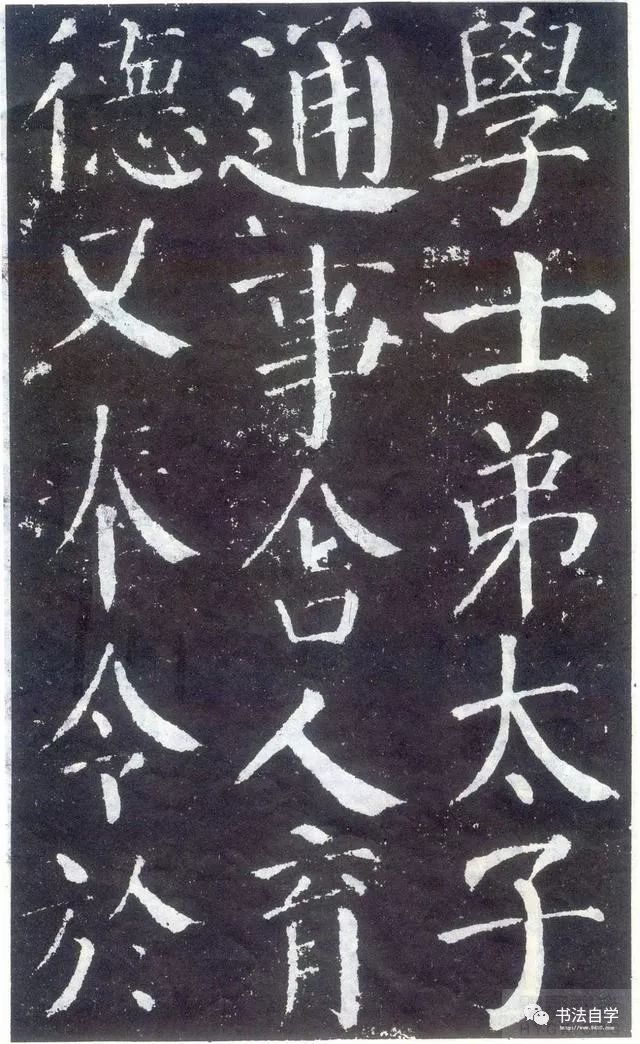 學士弟太子
通事舍人育
德又令於
书法自学